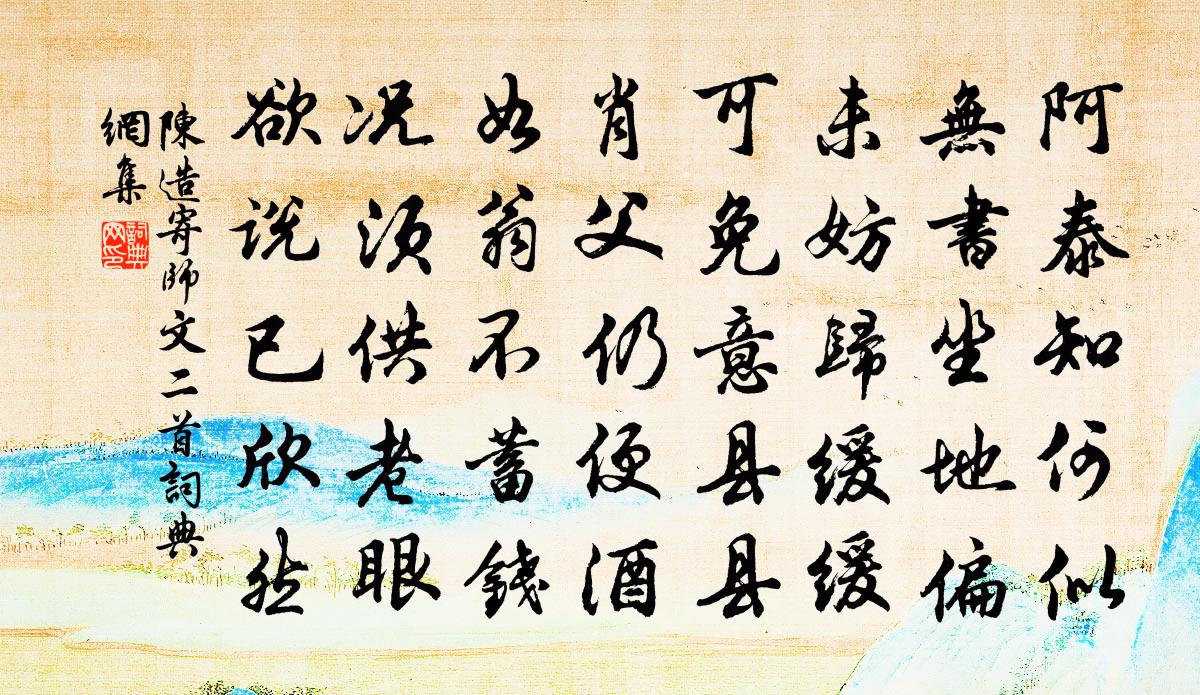 阿泰知何似
無書坐地偏
未妨歸緩緩
可免意县县
肖父仍便酒
如翁不蓄錢
况須供老眼
欲説已欣然
陳造寄師文二首詞典
網集
詞典
网印